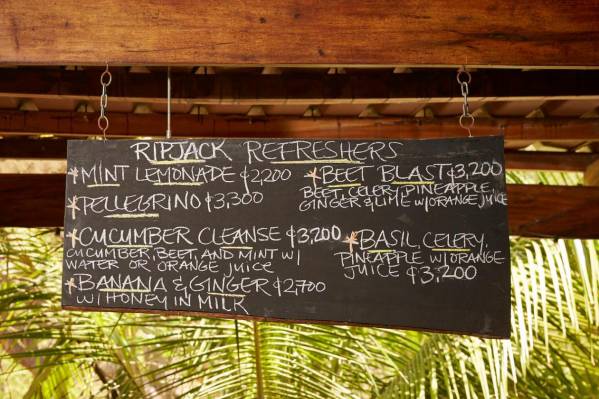 RIPJACK REFRESHERS
*MINT LEMONADE ₡2,200
*PELLEGRINO ₡3,300
*CUCUMBER CLEANSE ₡3,200
CUCUMBER, BEET, AND MINT W/
WATER OR ORANGE JUICE
*BANANA & GINGER ₡2,700
W/ HONEY IN MILK
*BEET BLAST ₡3,200
BEET, CELERY, PINEAPPLE,
GINGER & LIME W/ ORANGE JUICE
*BASIL, CELERY,
PINEAPPLE W/ ORANGE
JUICE ₡3,200